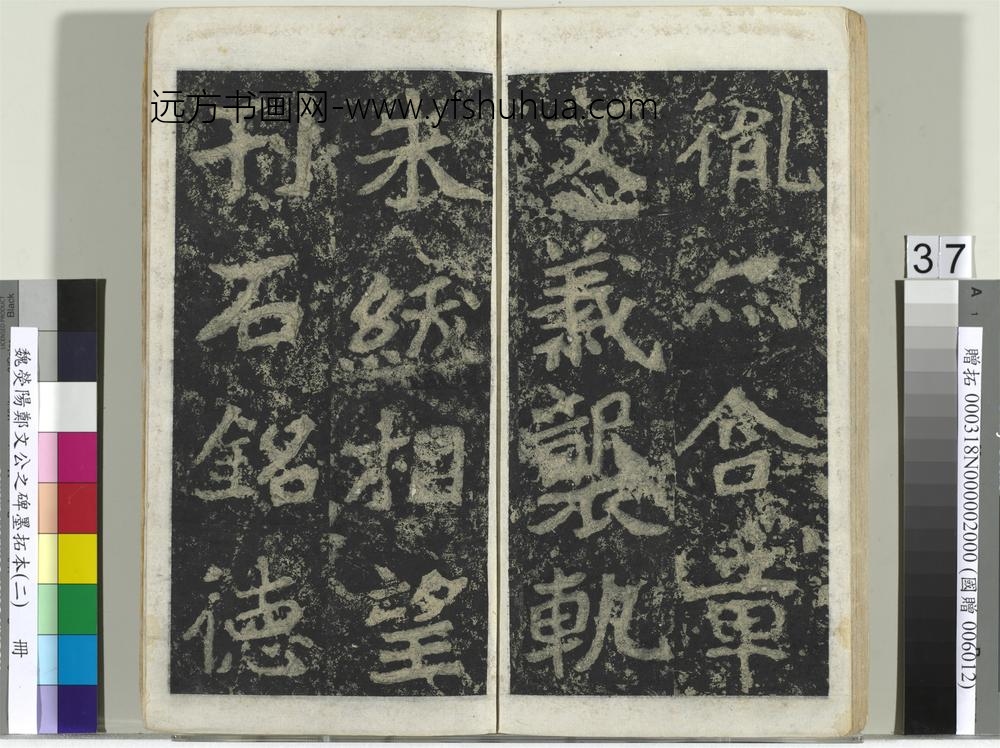 远方书画网-www.yfshuhua.com
胤亦含章
文義襲軌
朱紱相望
刊石銘德
37
贈拓 000318N000002000 (國贈 006012)
魏滎陽鄭文公之碑墨拓本(二) 冊
Black
A
1